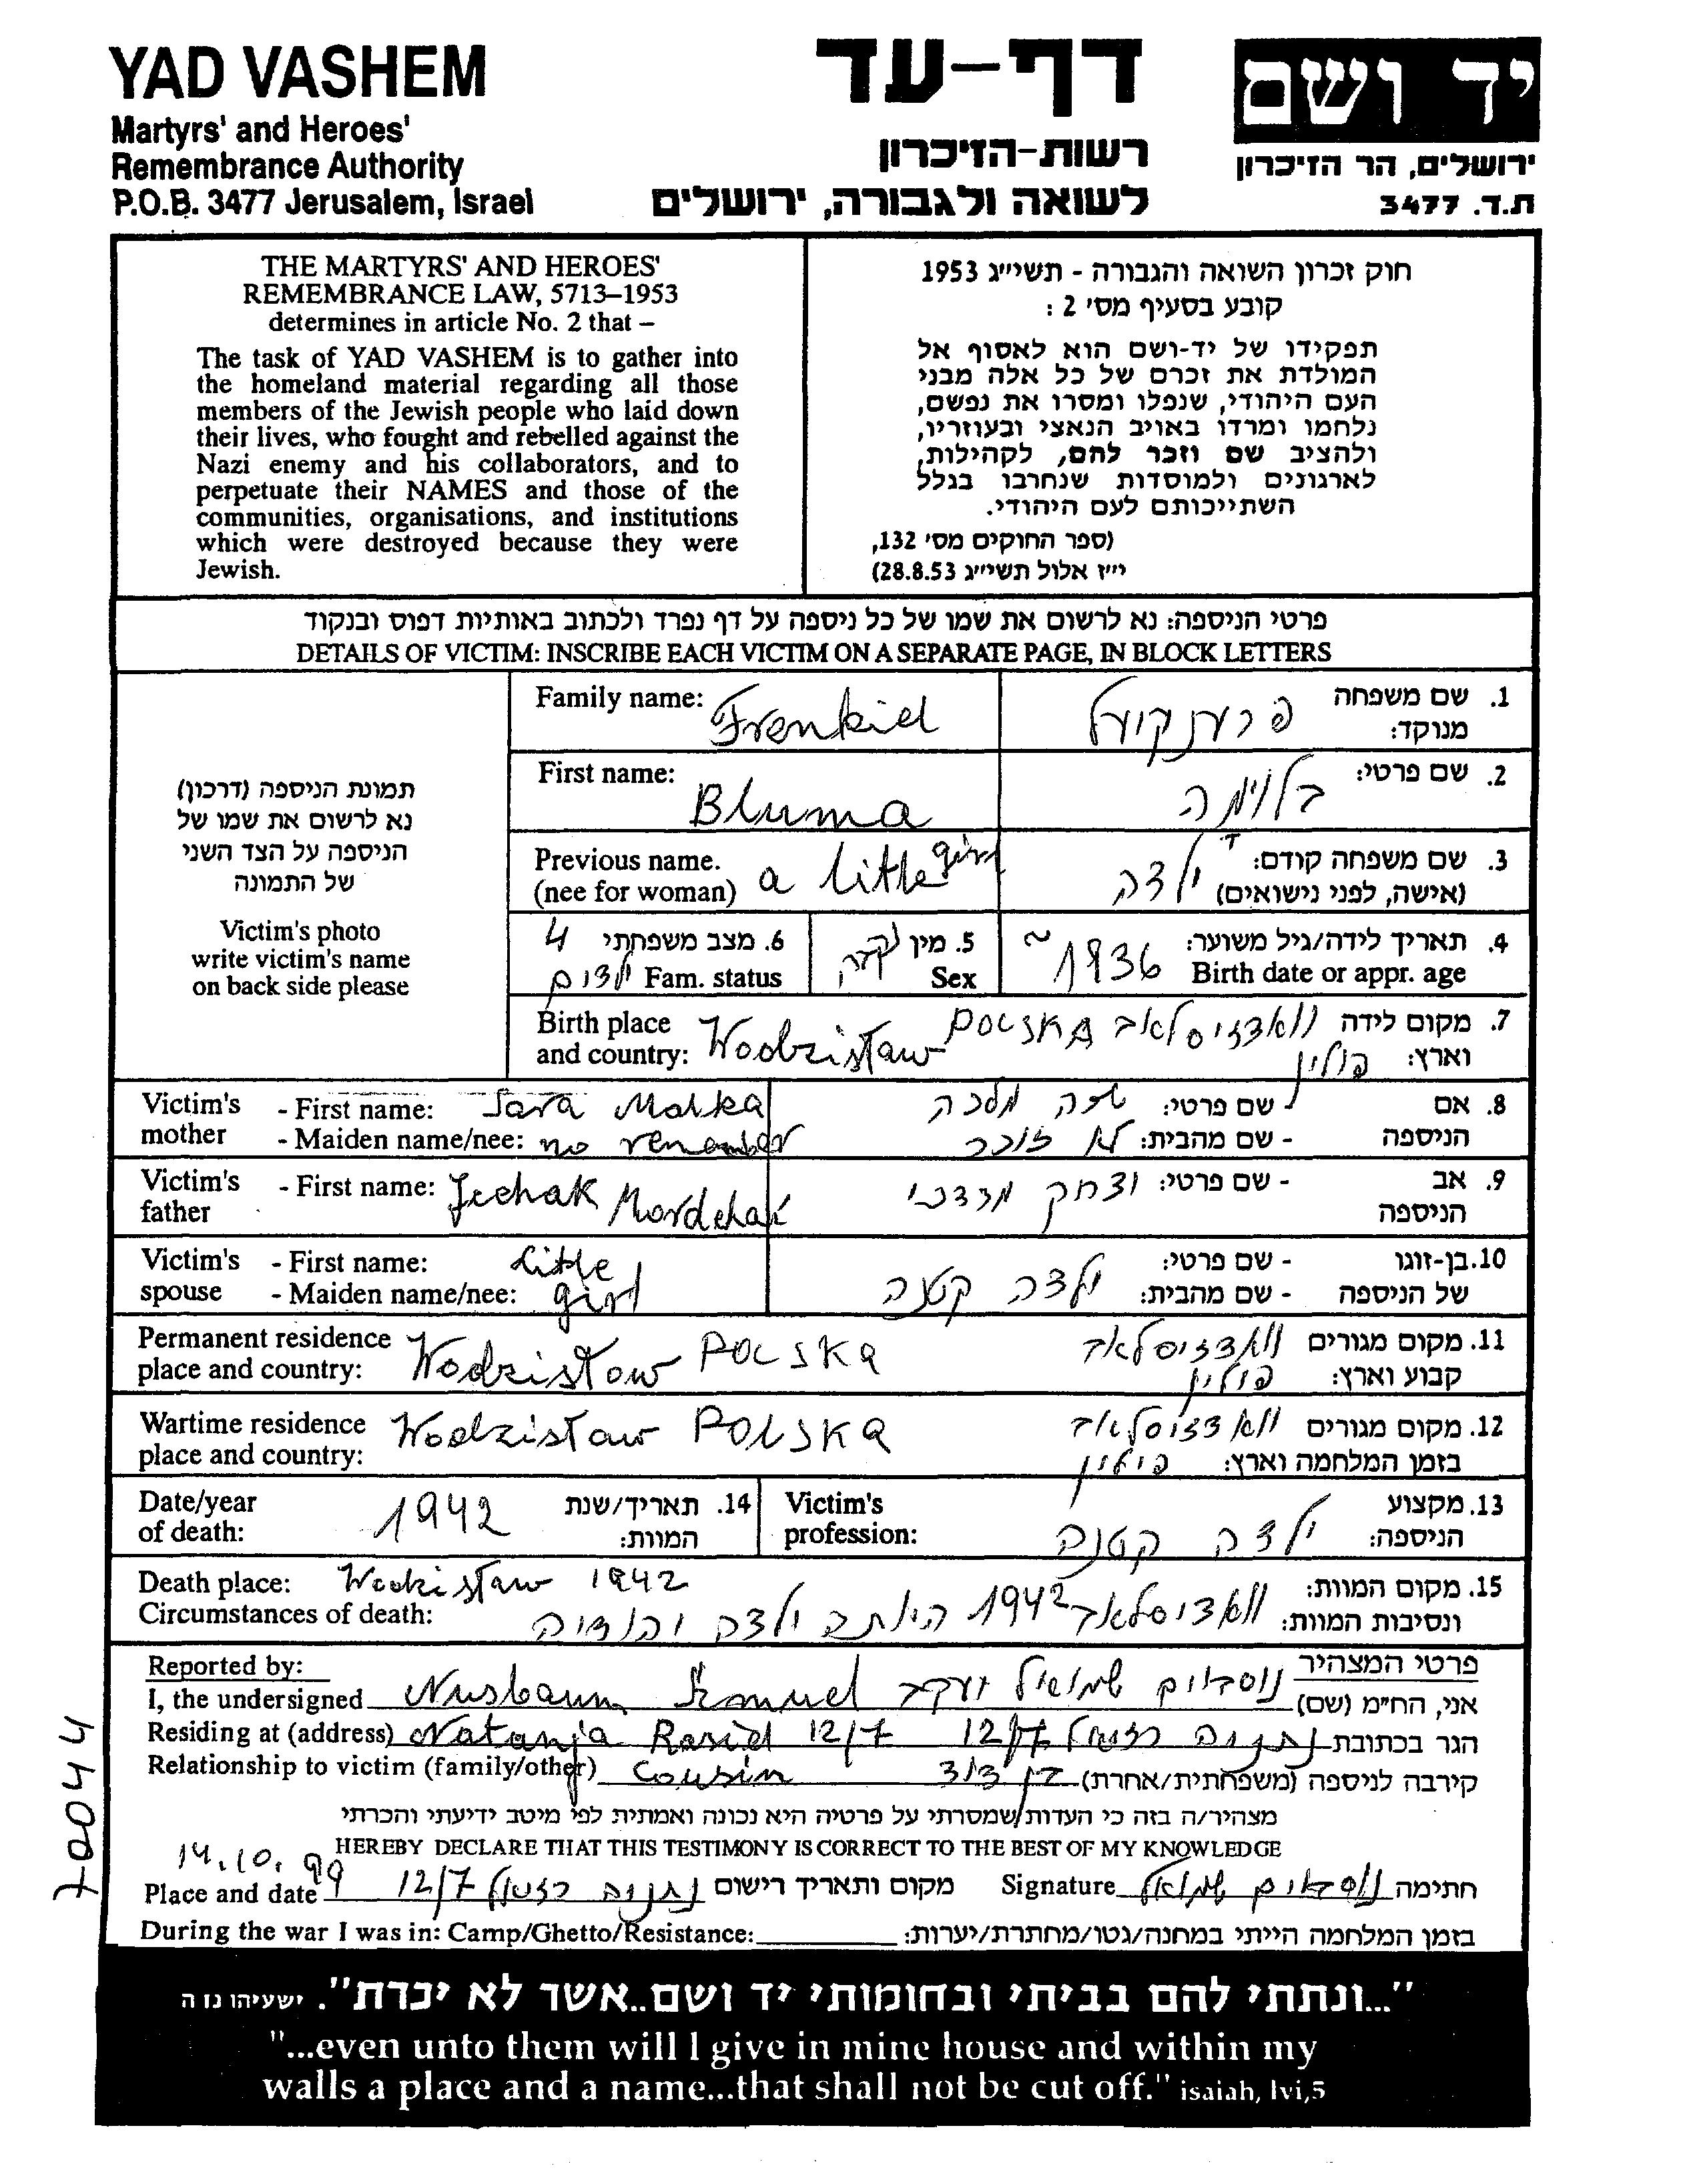 YAD VASHEM
Martyrs' and Heroes'
Remembrance Authority
P.O.B. 3477 Jerusalem, Israel
דף-עד
רשות-הזיכרון
לשואה ולגבורה, ירושלים
יד ושם
ירושלים, הר הזיכרון
ת.ד. 3477
THE MARTYRS' AND HEROES'
REMEMBRANCE LAW, 5713–1953
determines in article No. 2 that –
The task of YAD VASHEM is to gather into
the homeland material regarding all those
members of the Jewish people who laid down
their lives, who fought and rebelled against the
Nazi enemy and his collaborators, and to
perpetuate their NAMES and those of the
communities, organisations, and institutions
which were destroyed because they were
Jewish.
חוק זכרון השואה והגבורה - תשי״ג 1953
קובע בסעיף מס׳ 2 :
תפקידו של יד-ושם הוא לאסוף אל
המולדת את זכרם של כל אלה מבני
העם היהודי, שנפלו ומסרו את נפשם,
נלחמו ומרדו באויב הנאצי ובעוזריו,
ולהציב שם וזכר להם, לקהילות,
לארגונים ולמוסדות שנחרבו בגלל
השתייכותם לעם היהודי.
(ספר החוקים מס׳ 132,
י״ז אלול תשי״ג 28.8.53)
פרטי הניספה: נא לרשום את שמו של כל ניספה על דף נפרד ולכתוב באותיות דפוס ובנקוד
DETAILS OF VICTIM: INSCRIBE EACH VICTIM ON A SEPARATE PAGE, IN BLOCK LETTERS
תמונת הניספה (דרכון)
נא לרשום את שמו של
הניספה על הצד השני
של התמונה
Victim's photo
write victim's name
on back side please
Family name: Frenkiel פרענקיעל 1. שם משפחה
מנוקד:
First name: Bluma בלומה 2. שם פרטי:
Previous name. a little girl ילדה 3. שם משפחה קודם:
(nee for woman) (אישה, לפני נישואים)
4 ילדים 6. מצב משפחתי Fam. status
5. מין נקבה Sex
~1936 4. תאריך לידה/גיל משוער:
Birth date or appr. age
Birth place Wodzistaw POLSKA וואדזיסלאב 7. מקום לידה
and country: פולין וארץ:
Victim's - First name: Sara Malka שרה מלכה - שם פרטי: 8. אם
mother - Maiden name/nee: no remember לא זוכר - שם מהבית: הניספה
Victim's - First name: Jechak Mordchai יצחק מרדכי - שם פרטי: 9. אב
father הניספה
Victim's - First name: Little ילדה קטנה - שם פרטי: 10. בן-זוגו
spouse - Maiden name/nee: girl - שם מהבית: של הניספה
Permanent residence Wodzistow POLSKA וואדזיסלאב 11. מקום מגורים
place and country: פולין קבוע וארץ:
Wartime residence Wodzistow POLSKA וואדזיסלאב 12. מקום מגורים
place and country: פולין בזמן המלחמה וארץ:
Date/year 1942 14. תאריך/שנת
of death: המוות:
Victim's ילדה קטנה 13. מקצוע
profession: הניספה:
Death place: Wodzistaw 1942 וואדזיסלאב 1942 15. מקום המוות:
Circumstances of death: היותה ילדה יהודיה ונסיבות המוות:
Reported by: פרטי המצהיר
I, the undersigned Nusbaum Szmuel נוסבוים שמואל יעקב אני, הח״מ (שם)
Residing at (address) Natanja Raziel 12/7 נתניה רזיאל 12/7 הגר בכתובת
Relationship to victim (family/other) Cousin בן דוד קירבה לניספה (משפחתית/אחרת)
מצהיר/ה בזה כי העדות שמסרתי על פרטיה היא נכונה ואמתית לפי מיטב ידיעתי והכרתי
HEREBY DECLARE THAT THIS TESTIMONY IS CORRECT TO THE BEST OF MY KNOWLEDGE
14.10.99
Place and date נתניה רזיאל 12/7 מקום ותאריך רישום Signature נוסבוים שמואל חתימה
During the war I was in: Camp/Ghetto/Resistance: בזמן המלחמה הייתי במחנה/גטו/מחתרת/יערות:
70044
"...ונתתי להם בביתי ובחומותי יד ושם..אשר לא יכרת". ישעיהו נו ה
"...even unto them will I give in mine house and within my
walls a place and a name...that shall not be cut off." isaiah, lvi,5